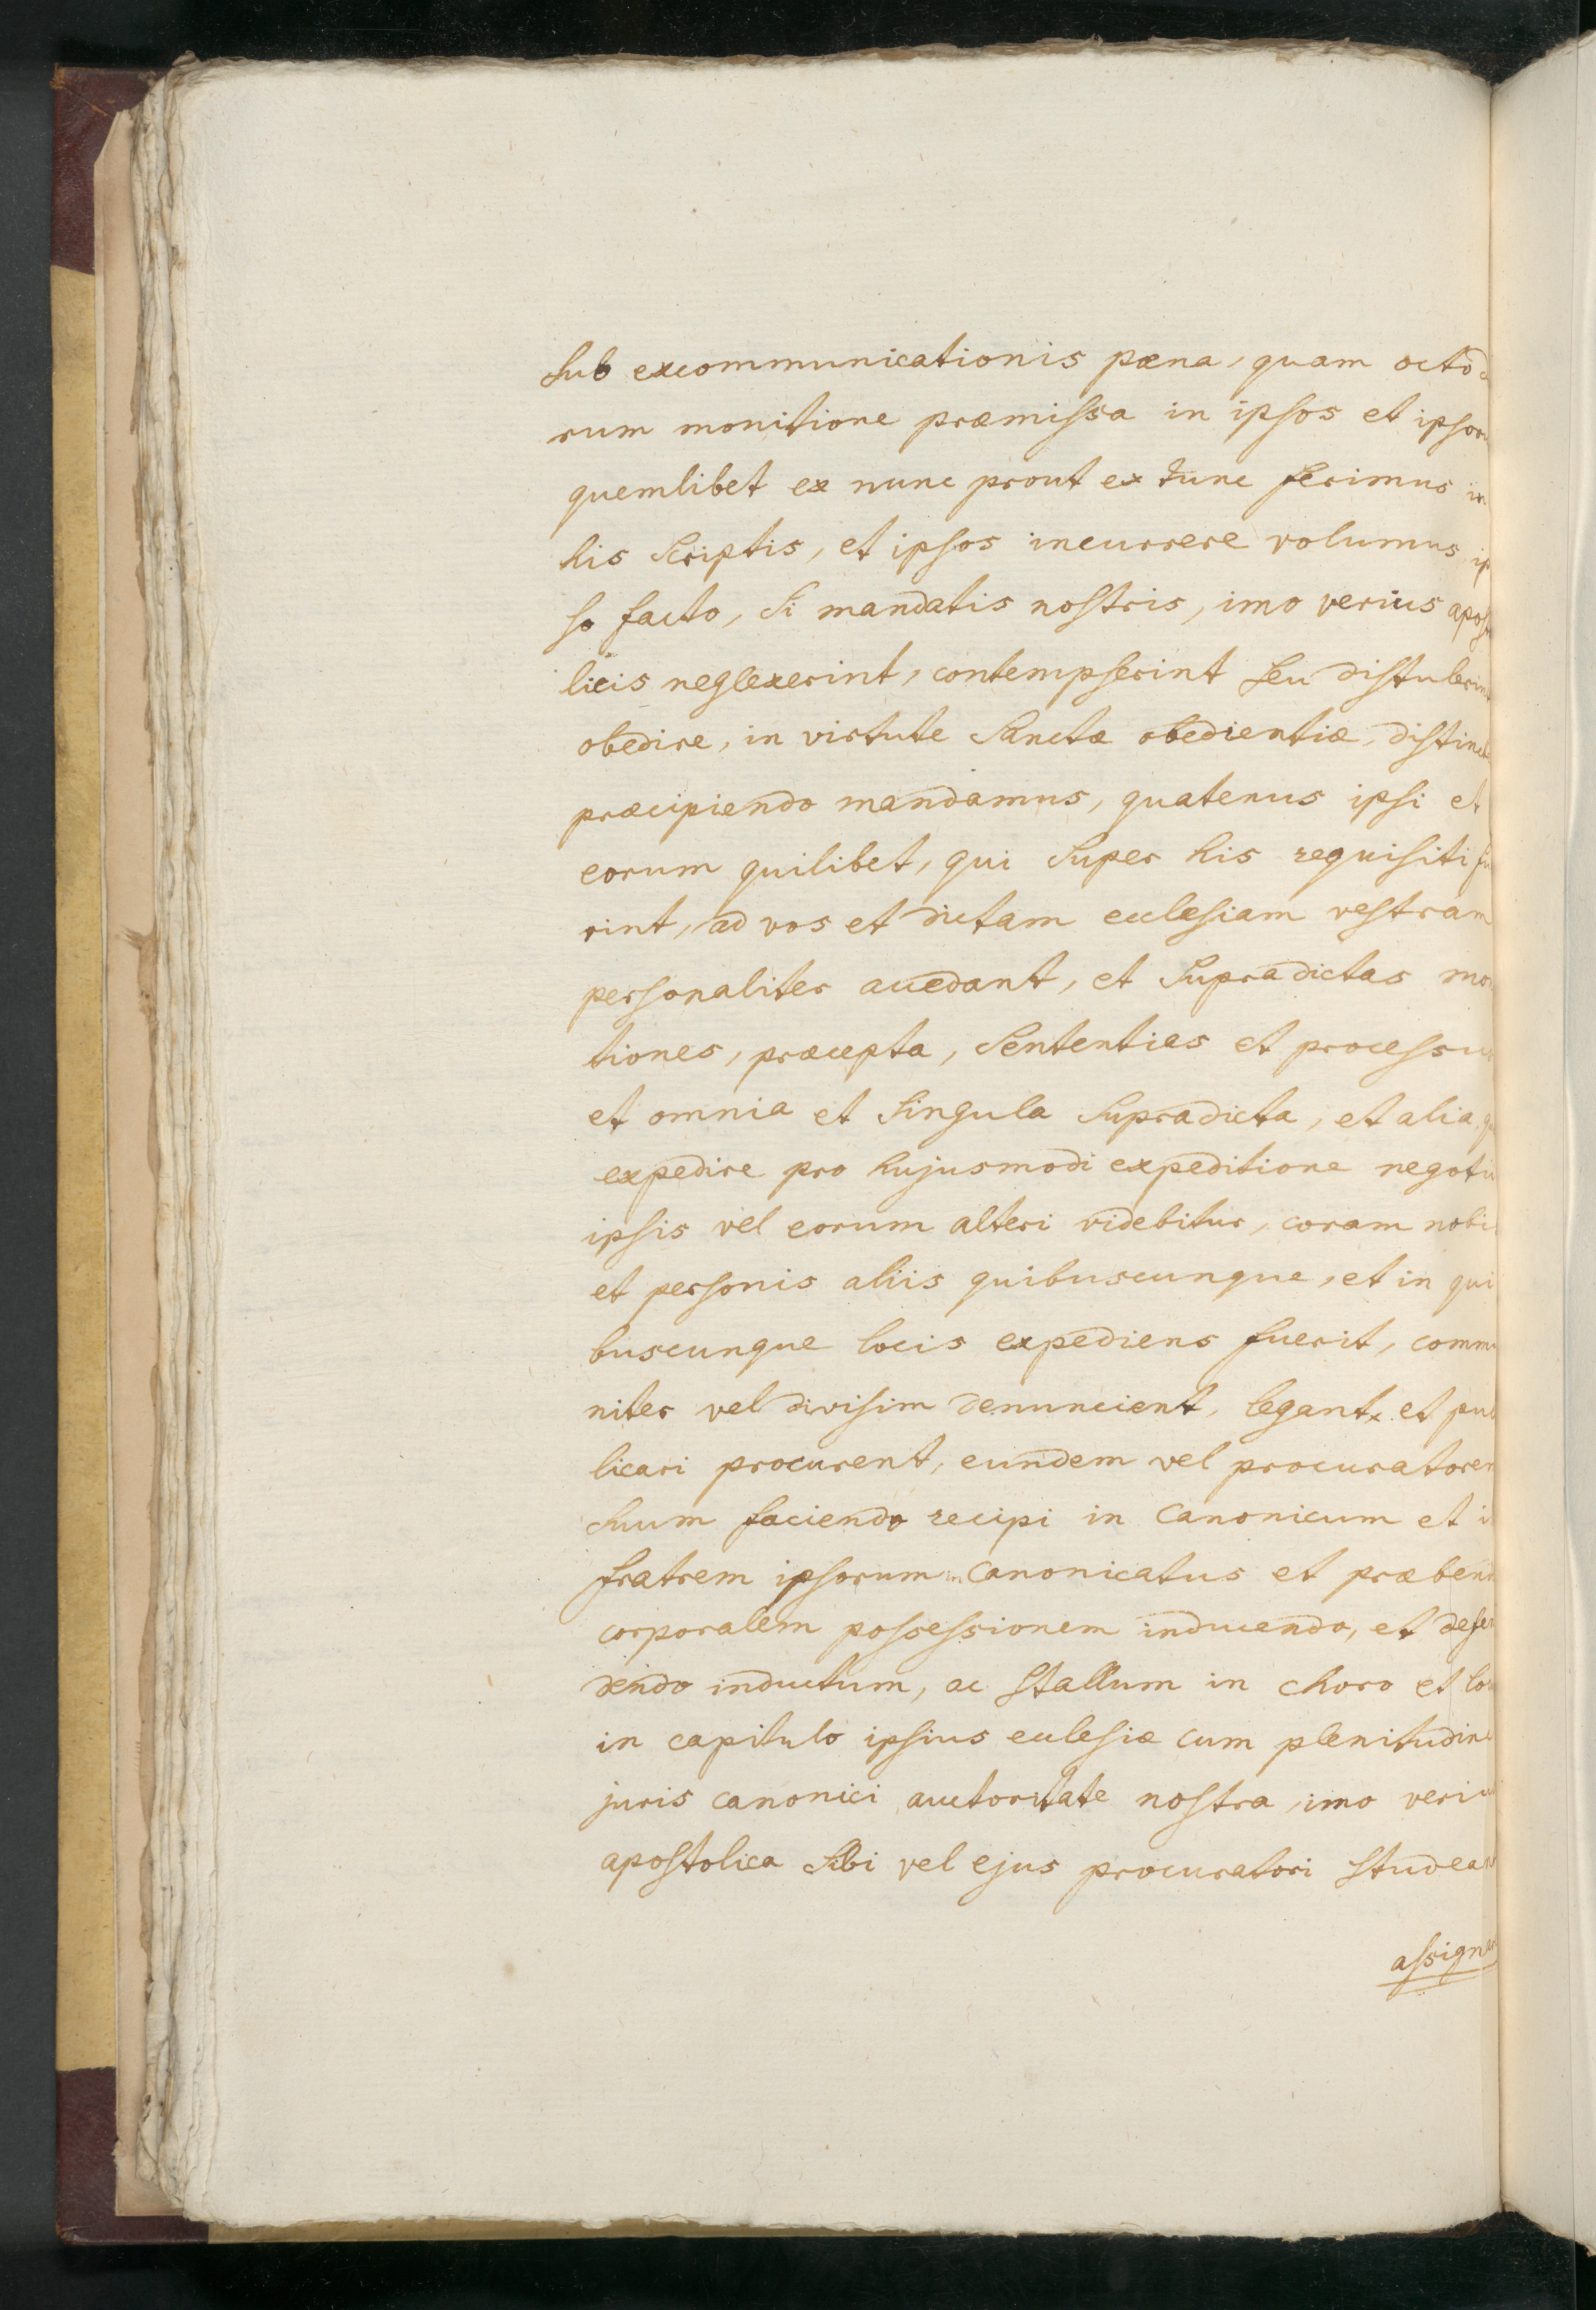 sub excommunicationis pæna, quam octo d
rum monitione præmissa in ipsos et ipsoru
quemlibet ex nunc prout ex tunc ferimus in
his scriptis, et ipsos incurrere volumus ip
so facto, si mandatis nostris, imo verius aposto
licis neglexerint, contempserint seu distulerint
obedire, in virtute sanctæ obedientiæ, distincte
præcipiendo mandamus, quatenus ipsi et
eorum quilibet, qui super his requisiti fu
rint, ad vos et dictam ecclesiam vestram
personaliter accedant, et supradictas mo
tiones, præcepta, sententias et processus
et omnia et singula supradicta, et alia, q
expedire pro hujusmodi expeditione negotii
ipsis vel eorum alteri videbitur, coram nobis
et personis aliis quibuscunque, et in qui
buscunque locis expediens fuerit, commu
niter vel divisim denuncient, legant, et pub
licari procurent, eundem vel procuratorem
suum faciendo recipi in canonicum et i
fratrem ipsorum in canonicatus et præbend
corporalem possessionem inducendo, et defen
dendo inductum, ac stallum in choro et loc
in capitulo ipsius ecclesiæ cum plenitudine
juris canonici auctoritate nostra, imo verius
apostolica sibi vel ejus procuratori studeant
assignar